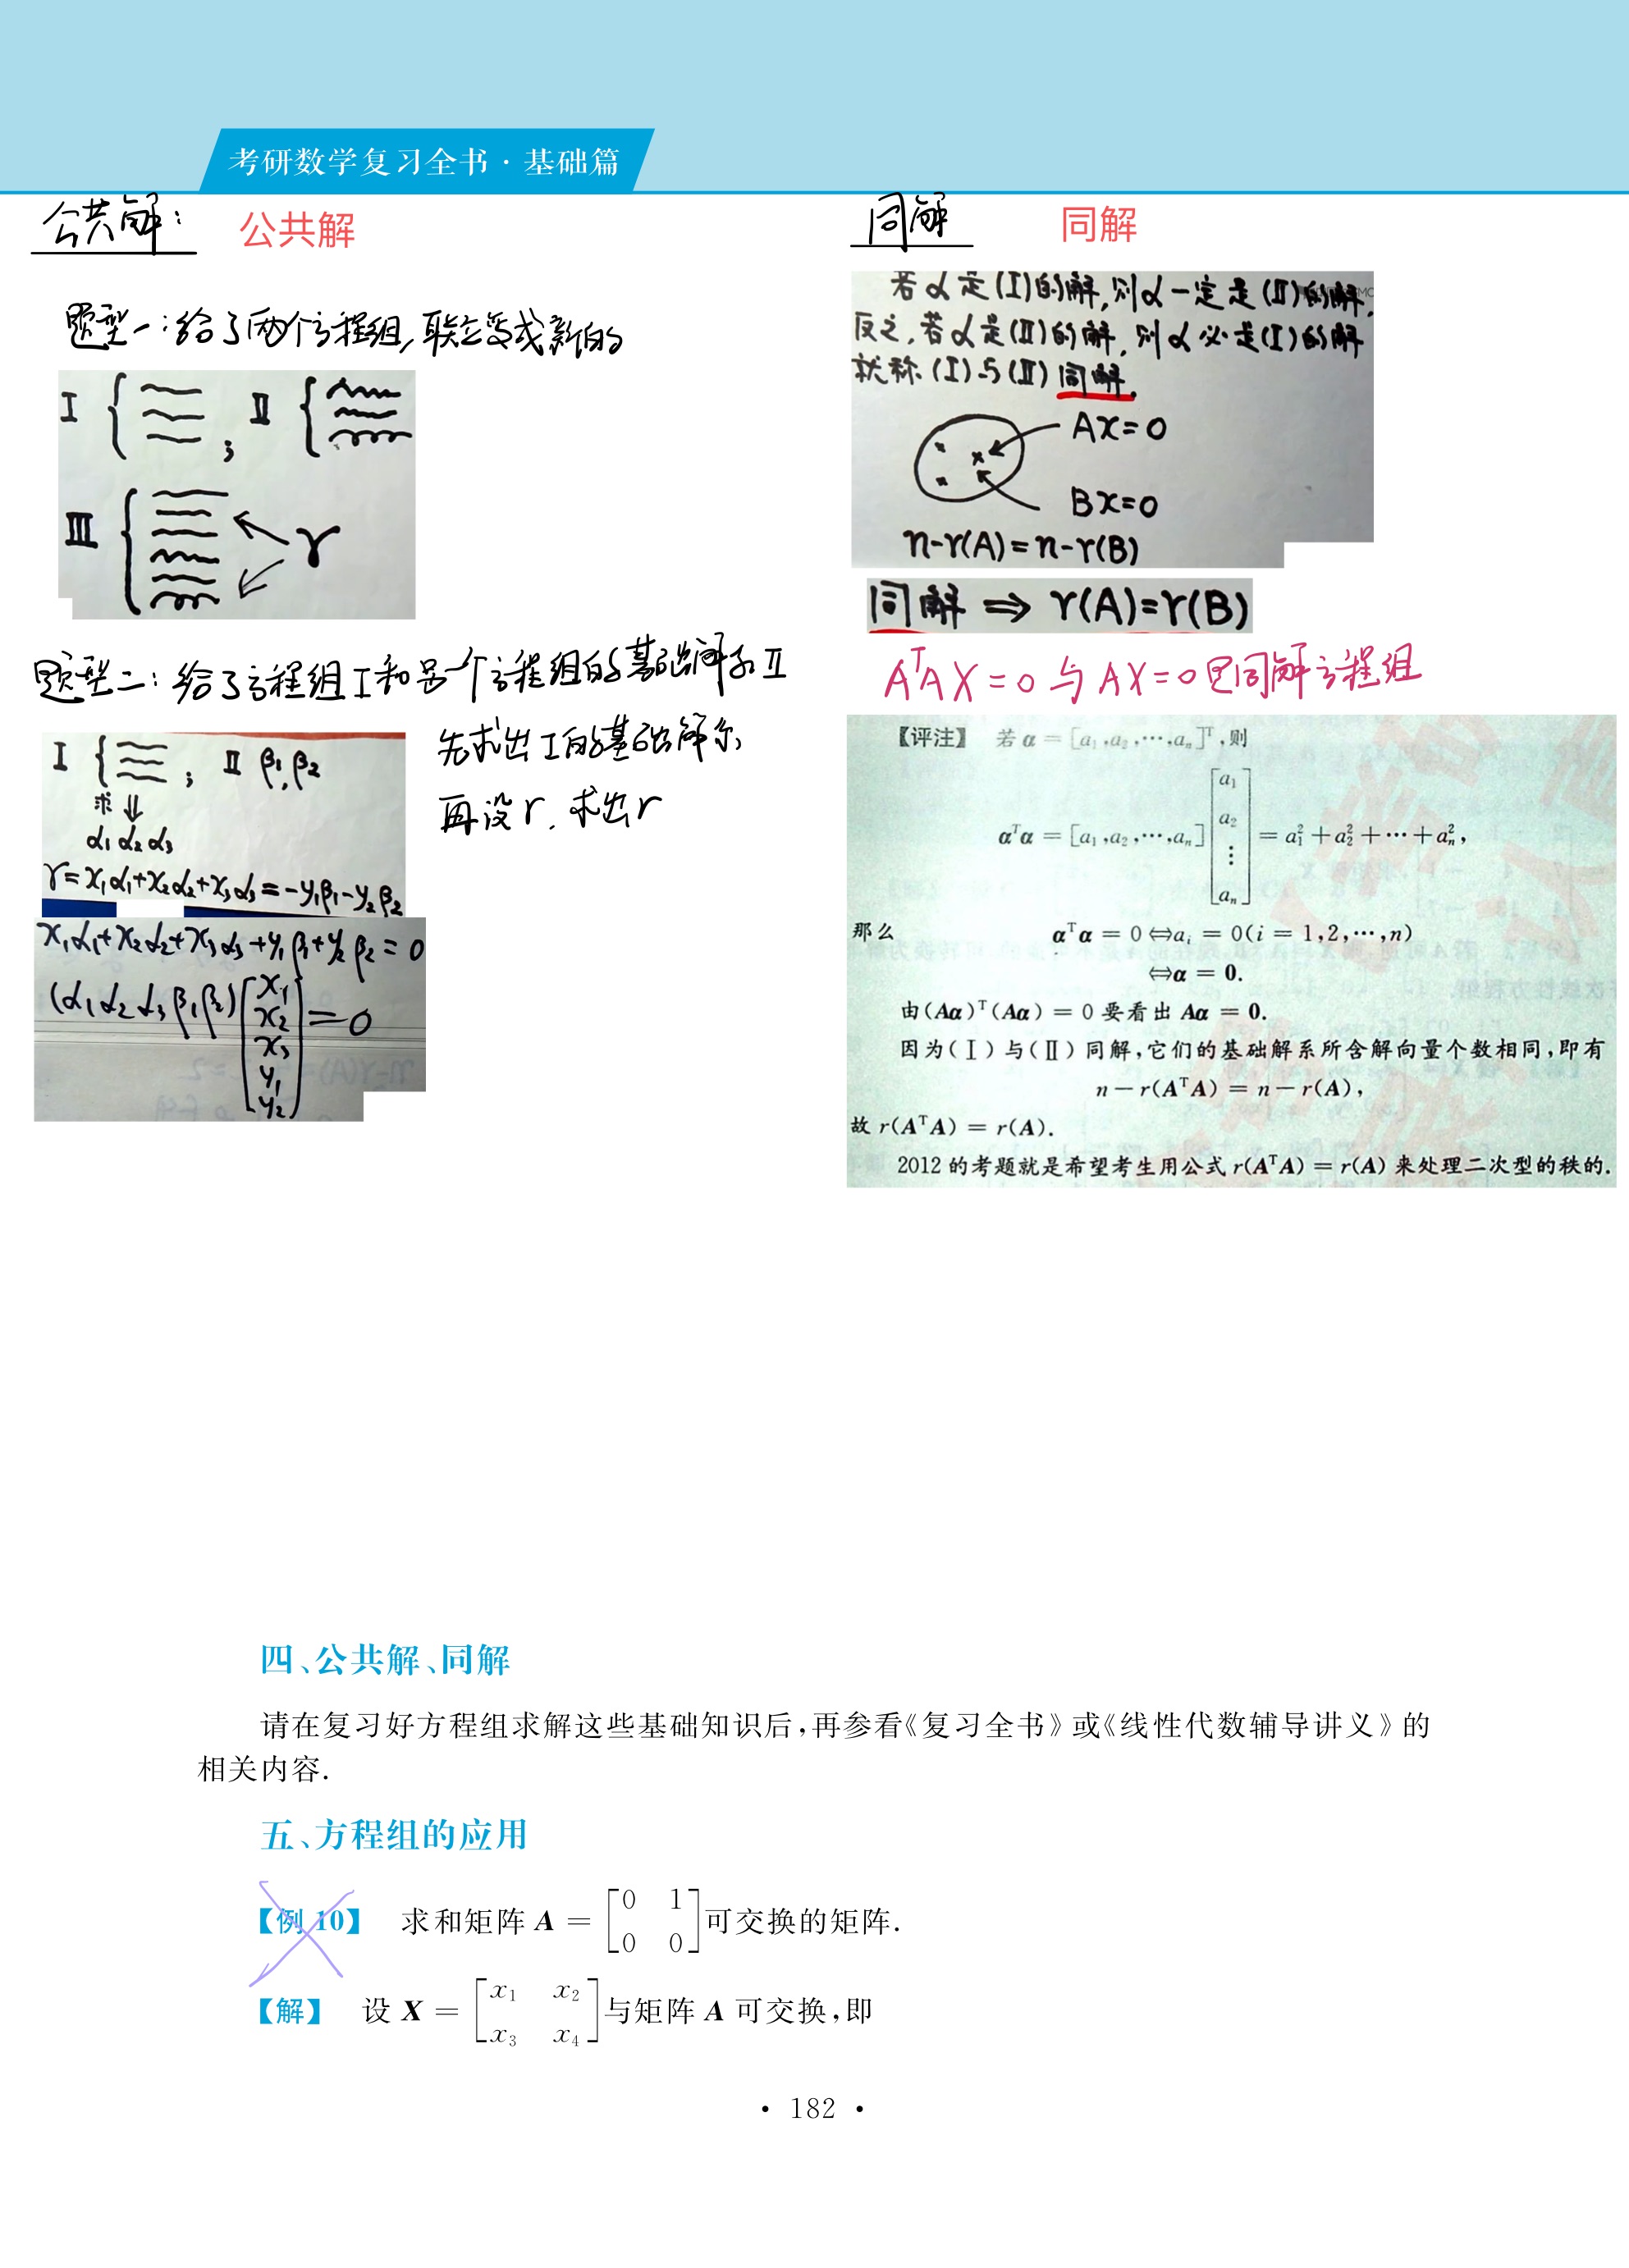 考研数学复习全书·基础篇
公共解：
公共解
题型一：给了两个方程组，联立变成新的
I { ； II {
III { γ
题型二：给了方程组I和另一个方程组的基础解系II
I { ； II β₁,β₂
求 ⇓
α₁ α₂ α₃
γ=x₁α₁+x₂α₂+x₃α₃=-y₁β₁-y₂β₂
先求出I的基础解系
再设r，求出r
x₁α₁+x₂α₂+x₃α₃+y₁β₁+y₂β₂=0
(α₁ α₂ α₃ β₁ β₂)[x₁ x₂ x₃ y₁ y₂]=0
同解
同解
若α是(I)的解，则α一定是(II)的解，
反之，若α是(II)的解，则α必是(I)的解
就称(I)与(II)同解.
Ax=0
Bx=0
n-r(A)=n-r(B)
同解 ⇒ r(A)=r(B)
AᵀAX=0与AX=0是同解方程组
【评注】 若 α = [a₁,a₂,⋯,aₙ]ᵀ,则
αᵀα = [a₁,a₂,⋯,aₙ][a₁ a₂ ⋮ aₙ] = a₁²+a₂²+⋯+aₙ²,
那么 αᵀα = 0⇔aᵢ = 0(i = 1,2,⋯,n)
⇔α = 0.
由(Aα)ᵀ(Aα) = 0 要看出 Aα = 0.
因为(Ⅰ)与(Ⅱ)同解,它们的基础解系所含解向量个数相同,即有
n − r(AᵀA) = n − r(A),
故 r(AᵀA) = r(A).
2012 的考题就是希望考生用公式 r(AᵀA) = r(A) 来处理二次型的秩的.
四、公共解、同解
请在复习好方程组求解这些基础知识后,再参看《复习全书》或《线性代数辅导讲义》的
相关内容.
五、方程组的应用
【例 10】 求和矩阵 A = [0 1 0 0]可交换的矩阵.
【解】 设 X = [x₁ x₂ x₃ x₄]与矩阵 A 可交换,即
· 182 ·